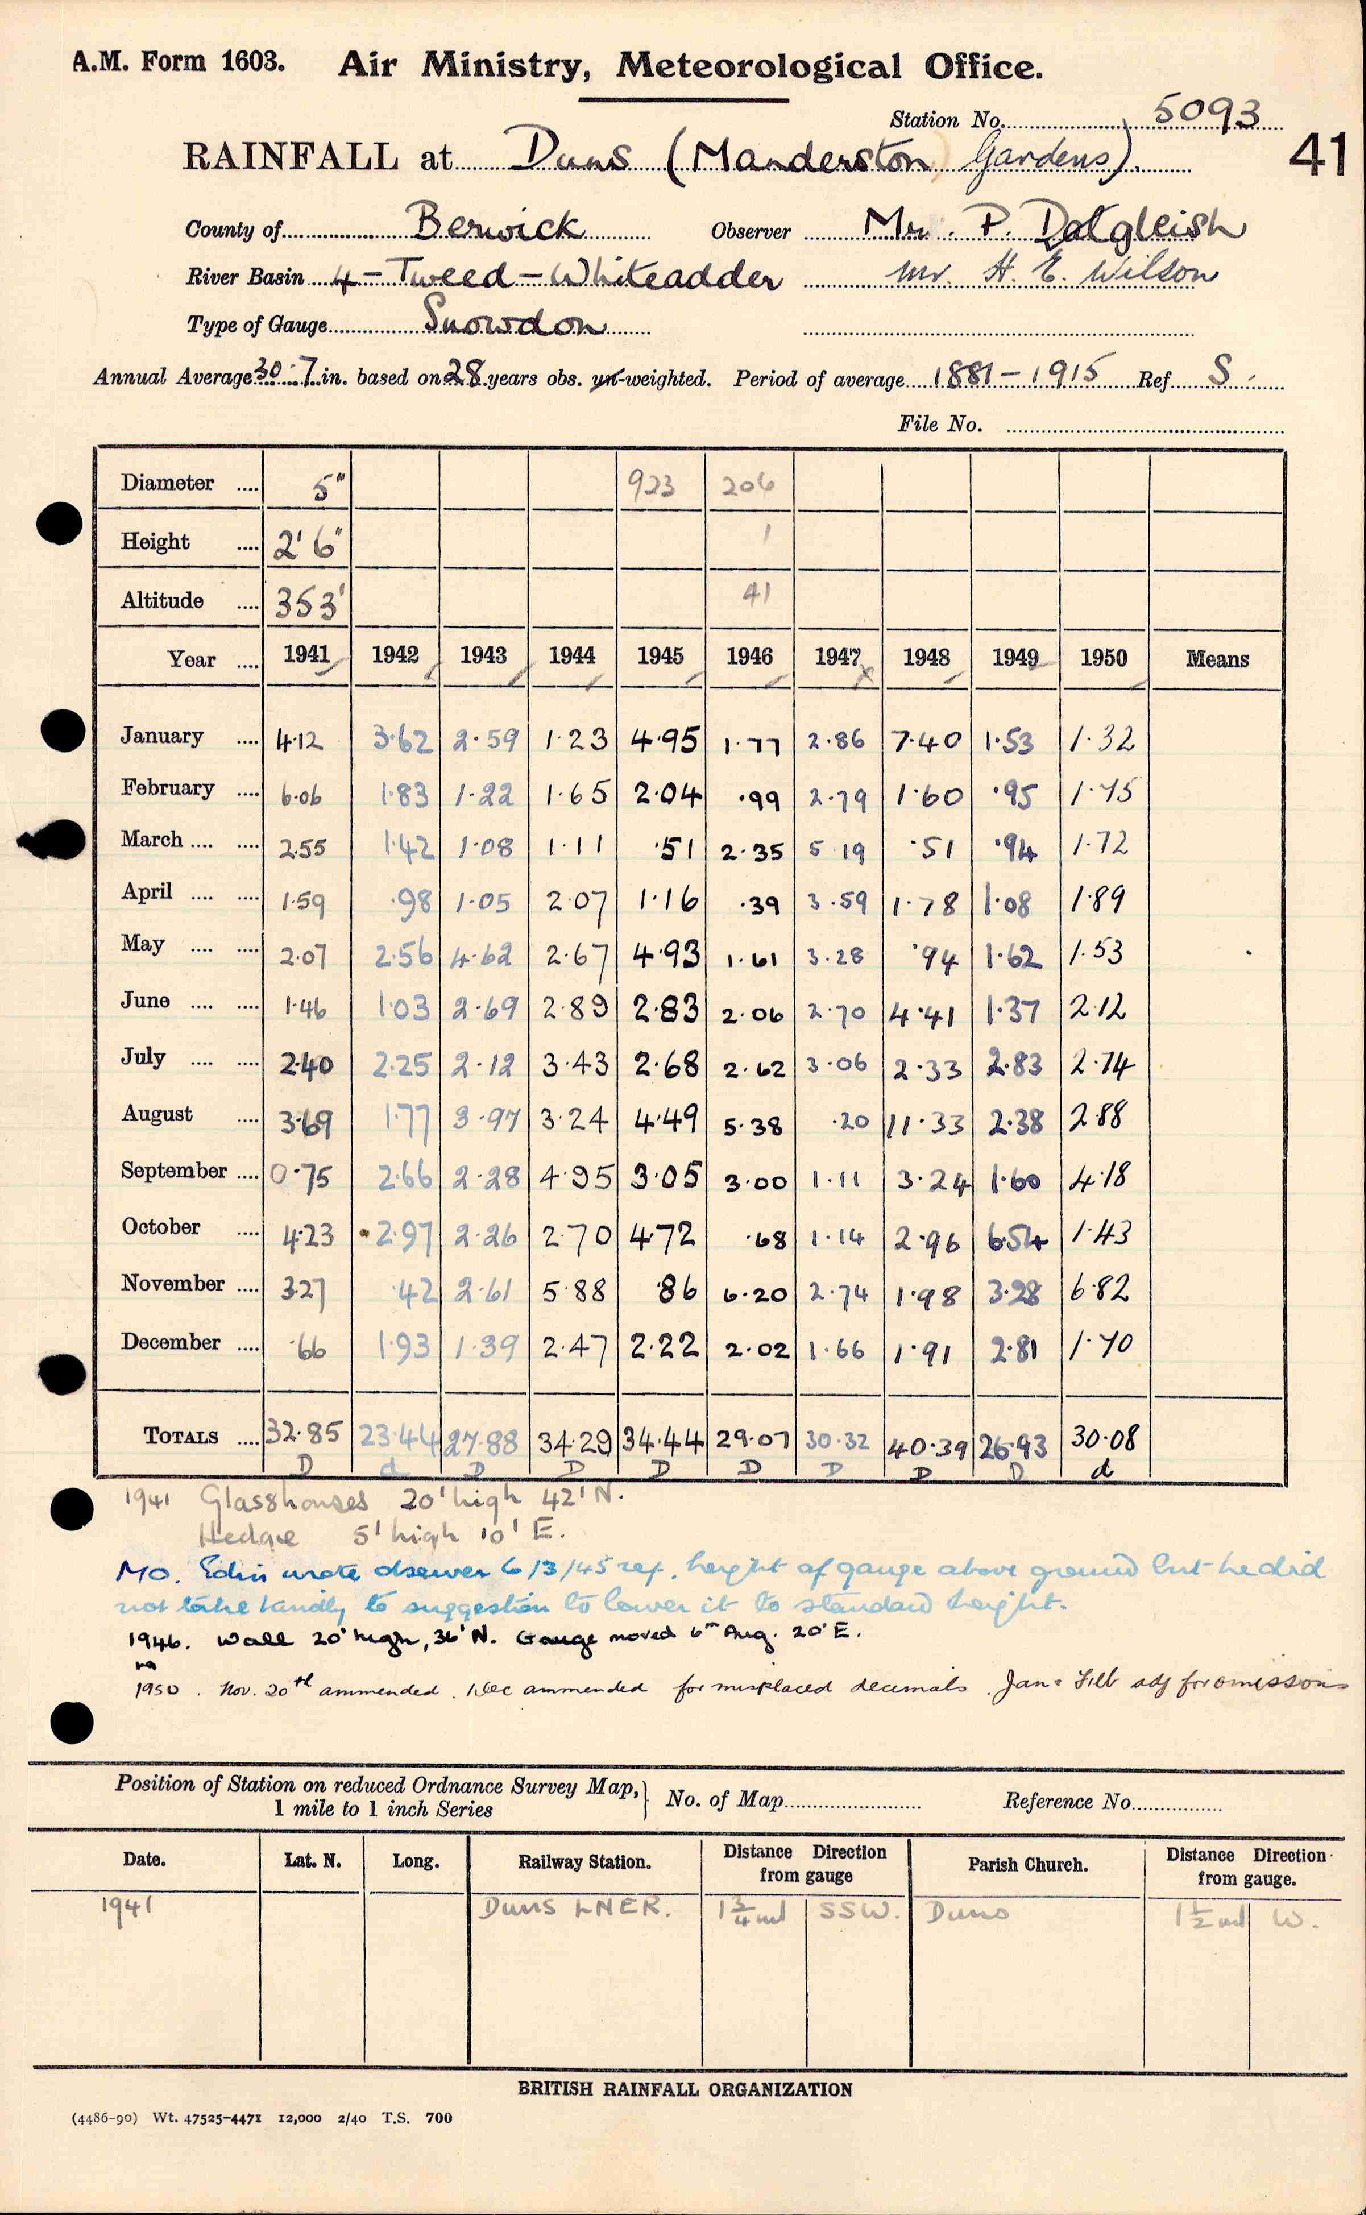 A.M. Form 1603. Air Ministry, Meteorological Office.
Station No. 5093
RAINFALL at Duns (Manderston Gardens). 41
County of Berwick Observer Mr. P. Dalgleish
River Basin 4-Tweed-Whiteadder Mr. H. E. Wilson
Type of Gauge Snowdon
Annual Average 30.7 in. based on 28 years obs. un-weighted. Period of average 1881-1915 Ref. S.
File No.
Diameter .... 5" 923 206
Height .... 2' 6" 1
Altitude .... 353' 41
Year .... 1941 1942 1943 1944 1945 1946 1947 1948 1949 1950 Means
January .... 4.12 3.62 2.59 1.23 4.95 1.77 2.86 7.40 1.53 1.32
February .... 6.06 1.83 1.22 1.65 2.04 .99 2.79 1.60 .95 1.75
March .... .... 2.55 1.42 1.08 1.11 .51 2.35 5.19 .51 .94 1.72
April .... .... 1.59 .98 1.05 2.07 1.16 .39 3.59 1.78 1.08 1.89
May .... .... 2.07 2.56 4.62 2.67 4.93 1.61 3.28 .94 1.62 1.53
June .... .... 1.46 1.03 2.69 2.89 2.83 2.06 2.70 4.41 1.37 2.12
July .... .... 2.40 2.25 2.12 3.43 2.68 2.62 3.06 2.33 2.83 2.74
August .... 3.69 1.77 3.97 3.24 4.49 5.38 .20 11.33 2.38 2.88
September .... 0.75 2.66 2.28 4.95 3.05 3.00 1.11 3.24 1.60 4.18
October .... 4.23 2.97 2.26 2.70 4.72 .68 1.14 2.96 6.54 1.43
November .... 3.27 .42 2.61 5.88 .86 6.20 2.74 1.98 3.28 6.82
December .... .66 1.93 1.39 2.47 2.22 2.02 1.66 1.91 2.81 1.70
TOTALS .... 32.85 23.44 27.88 34.29 34.44 29.07 30.32 40.39 26.93 30.08
D d D D D D D D D d
1941 Glasshouses 20' high 42' N.
Hedge 5' high 10' E.
MO. Edin wrote observer 6/3/45 ref. height of gauge above ground but he did
not take kindly to suggestion to lower it to standard height.
1946. Wall 20' high, 36' N. Gauge moved 6th Aug. 20' E.
1950. Nov. 20th ammended. Dec ammended for misplaced decimals. Jan & Feb adj for omissions
Position of Station on reduced Ordnance Survey Map, 1 mile to 1 inch Series } No. of Map Reference No.
Date. Lat. N. Long. Railway Station. Distance Direction from gauge Parish Church. Distance Direction from gauge.
1941 Duns LNER. 1 3/4 ml SSW. Duns 1 1/2 ml W.
BRITISH RAINFALL ORGANIZATION
(4486-90) Wt. 47525-4471 12,000 2/40 T.S. 700